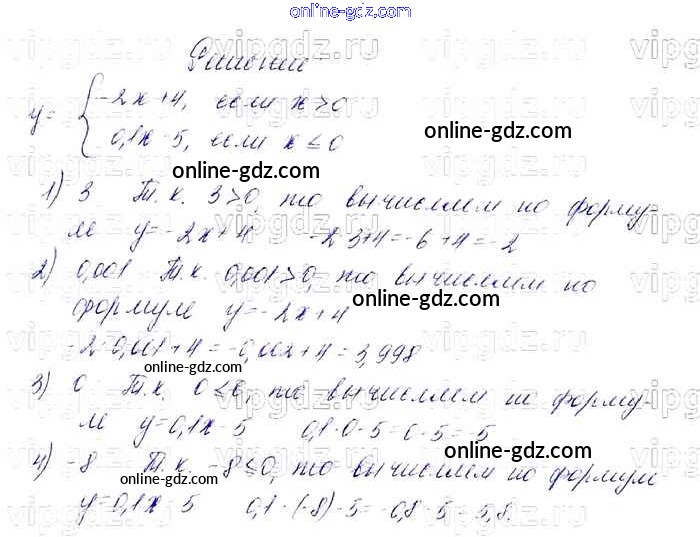 online-gdz.com
Решение
y = { -2x+4, если x>0
0,1x-5, если x ≤ 0
online-gdz.com
online-gdz.com
1) 3 Т.к. 3>0, то вычисляем по форму-
ле y=-2x+4 -2·3+4=-6+4=-2
online-gdz.com
2) 0,001 Т.к. 0,001>0, то вычисляем по
формуле y=-2x+4
online-gdz.com
-2·0,001+4=-0,002+4=3,998
online-gdz.com
3) 0 Т.к. 0≤0, то вычисляем по форму-
ле y=0,1x-5 0,1·0-5=0-5=-5
online-gdz.com
online-gdz.com
4) -8 Т.к. -8≤0, то вычисляем по формуле
y=0,1x-5 0,1·(-8)-5=-0,8-5=-5,8.
online-gdz.com
vipgdz.ru